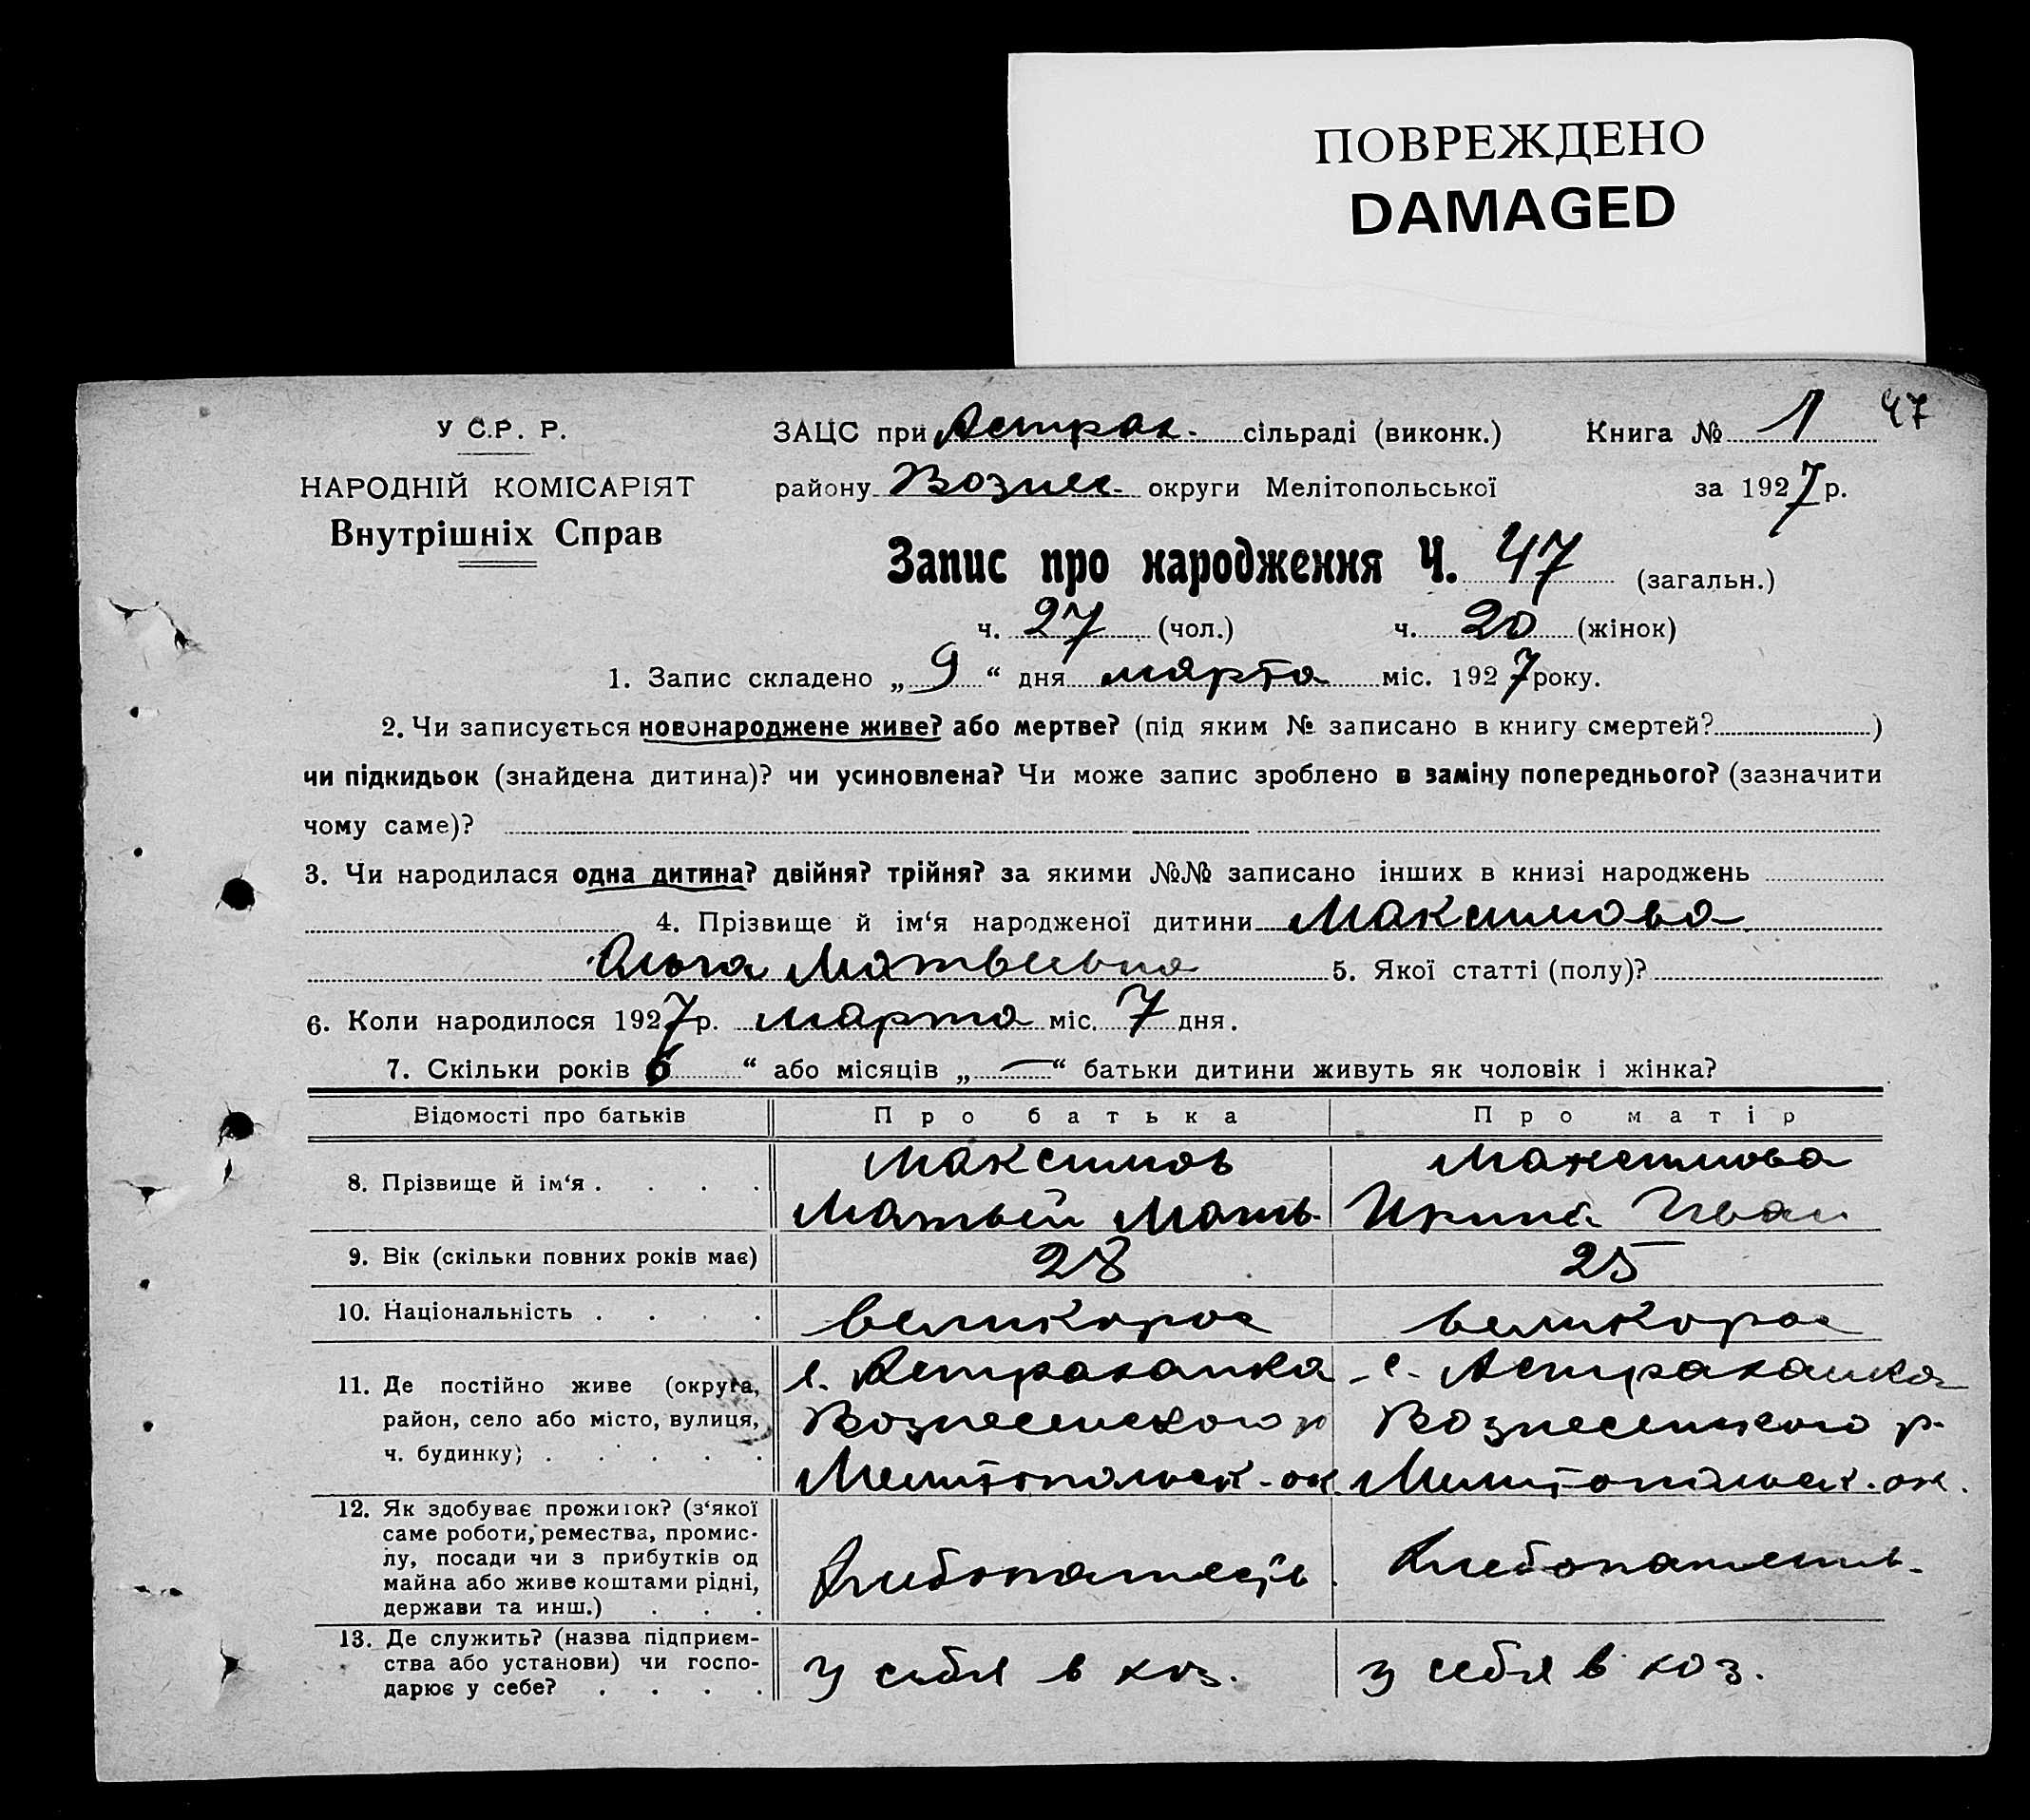 ПОВРЕЖДЕНО
DAMAGED
У С.Р. Р.
НАРОДНІЙ КОМІСАРІЯТ
Внутрішніх Справ
ЗАЦС при Астрах. сільраді (виконк.) Книга № 1 47
району Вознес. округи Мелітопольської за 1927 р.
Запис про народження Ч. 47 (загальн.)
ч. 27 (чол.) ч. 20 (жінок)
1. Запис складено „ 9 “ дня марта міс. 1927 року.
2. Чи записується новонароджене живе? або мертве? (під яким № записано в книгу смертей? )
чи підкидьок (знайдена дитина)? чи усиновлена? Чи може запис зроблено в заміну попереднього? (зазначити
чому саме)?
3. Чи народилася одна дитина? двійня? трійня? за якими №№ записано інших в книзі народжень
4. Прізвище й ім‘я народженої дитини Максимова
Ольга Матвеевна 5. Якої статті (полу)?
6. Коли народилося 1927 р. марта міс. 7 дня.
7. Скільки років 6 “ або місяців „ — “ батьки дитини живуть як чоловік і жінка?
Відомості про батьків Про батька Про матір
8. Прізвище й ім‘я . . . . Максимов Матвей Матв. Максимова Ирина Иван
9. Вік (скільки повних років має) 28 25
10. Національність . . . . великорос великорос
11. Де постійно живе (округа, с. Астраханка с. Астраханка
район, село або місто, вулиця, Вознесенского р Вознесенского р.
ч. будинку) . . . . . Мелитопольск. ок. Мелитопольск. ок.
12. Як здобуває прожиток? (з‘якої
саме роботи, ремества, промис-
лу, посади чи з прибутків од
майна або живе коштами рідні, Хлебопашество Хлебопашеств.
держави та инш.) . . .
13. Де служить? (назва підприєм-
ства або установи) чи госпо- у себя в хоз. у себя в хоз.
дарює у себе? . . . .